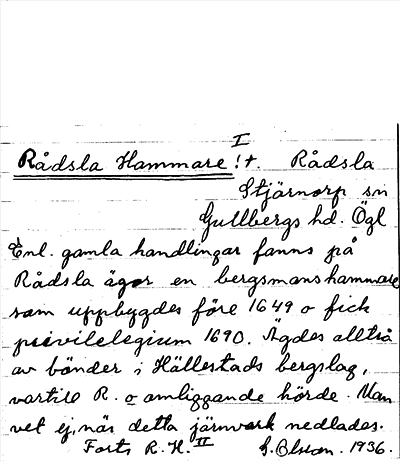 I
Rådsla Hammare !+. Rådsla
Stjärnorp sn
Gullbergs hd. Ögl
Enl. gamla handlingar fanns på
Rådsla ägor en bergsmanshammare
som uppbyggdes före 1649 o fick
privilelegium 1690. Ägdes alltså
av bönder i Hällestads bergslag,
vartill R. o omliggande hörde. Man
vet ej, när detta järnverk nedlades.
Forts. R. H. II G. Olsson. 1936.